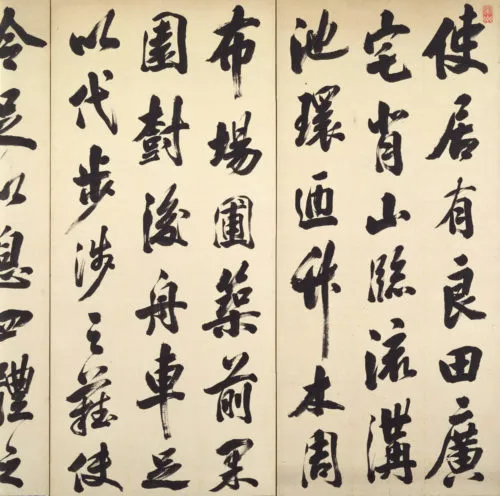 使居有良田廣
宅背山臨流溝
池環迊竹木周
布場圃築前果
園樹後舟車足
以代步涉之難使
令足以息四體之